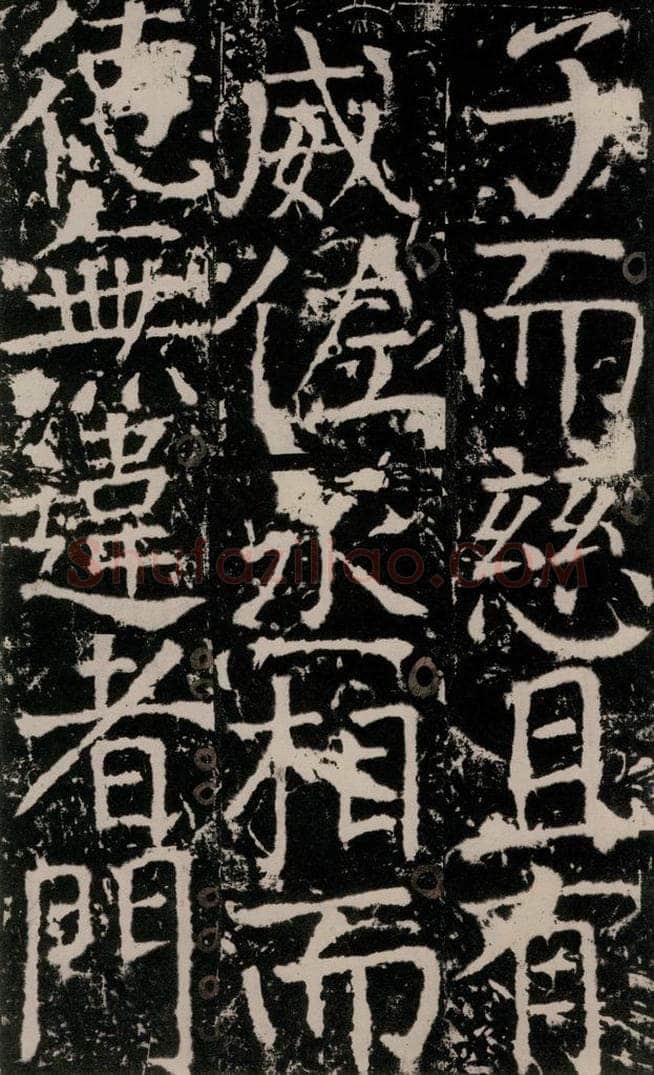 子而慈且有
威偃丞相而
德無違者門
Shufaziliao.COM